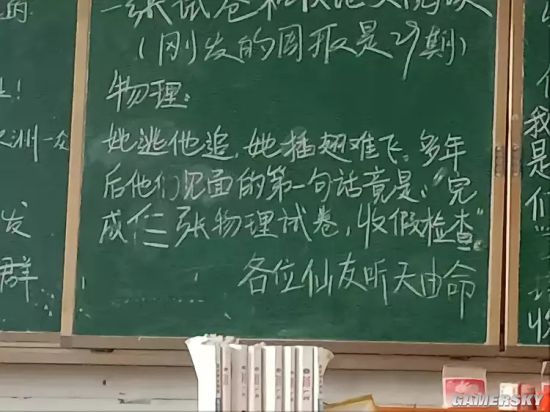 一张试卷和
(刚发的周报是29期)
物理:
她逃他追,她插翅难飞。多年
后他们见面的第一句话竟是:“完
成仁三张物理试卷,收假检查”
各位仙友听天由命
的
!
众
发
群
我
是
们
GAMERSKY